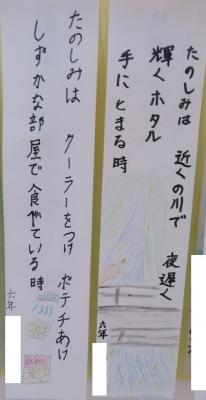 たのしみは 近くの川で 夜遅く
輝くホタル
手にとまる時
六年
たのしみは クーラーをつけ ポテチあけ
しずかな部屋で食べている時
六年